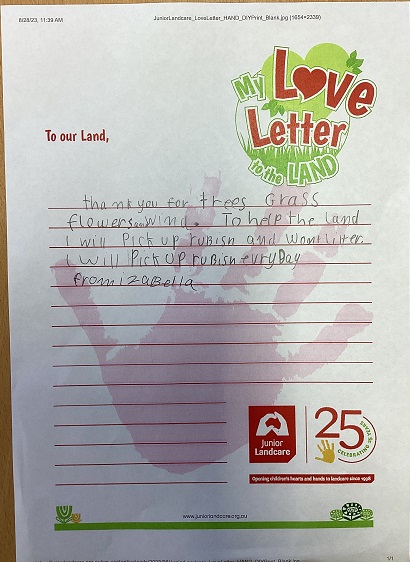 8/28/23, 11:39 AM
JuniorLandcare_LoveLetter_HAND_DIYPrint_Blank.jpg (1654×2339)
My Love
Letter
to the LAND
To our Land,
thank you for trees Grass
flowers wind. To help the land
I will Pick up rubish and wont litter.
I will Pick UP rubish evryDay
from izabella
Junior
Landcare
25
CELEBRATING 25 YEARS
Opening children's hearts and hands to landcare since 1998
www.juniorlandcare.org.au
1/1